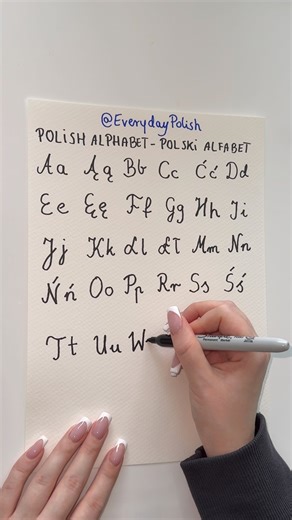 @EverydayPolish
POLISH ALPHABET - POLSKI ALFABET
Aa Ąą Bb Cc Ćć Dd
Ee Ęę Ff Gg Hh Ii
Jj Kk Ll Łł Mm Nn
Ńń Oo Pp Rr Ss Śś
Tt Uu W